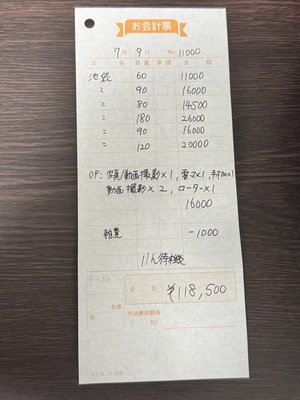 お会計票
7月9日 No. 11000
品名 数量 単価 金額
池袋 60 11000
〃 90 16000
〃 80 14500
〃 180 26000
〃 90 16000
〃 120 20000
OP: 写真/動画撮影×1, 電マ×1,
動画撮影×2, ローター×1
16000
雑費 -1000
11h待機
テーブル
合計 ¥118,500
名様
係
内消費税額等
%)